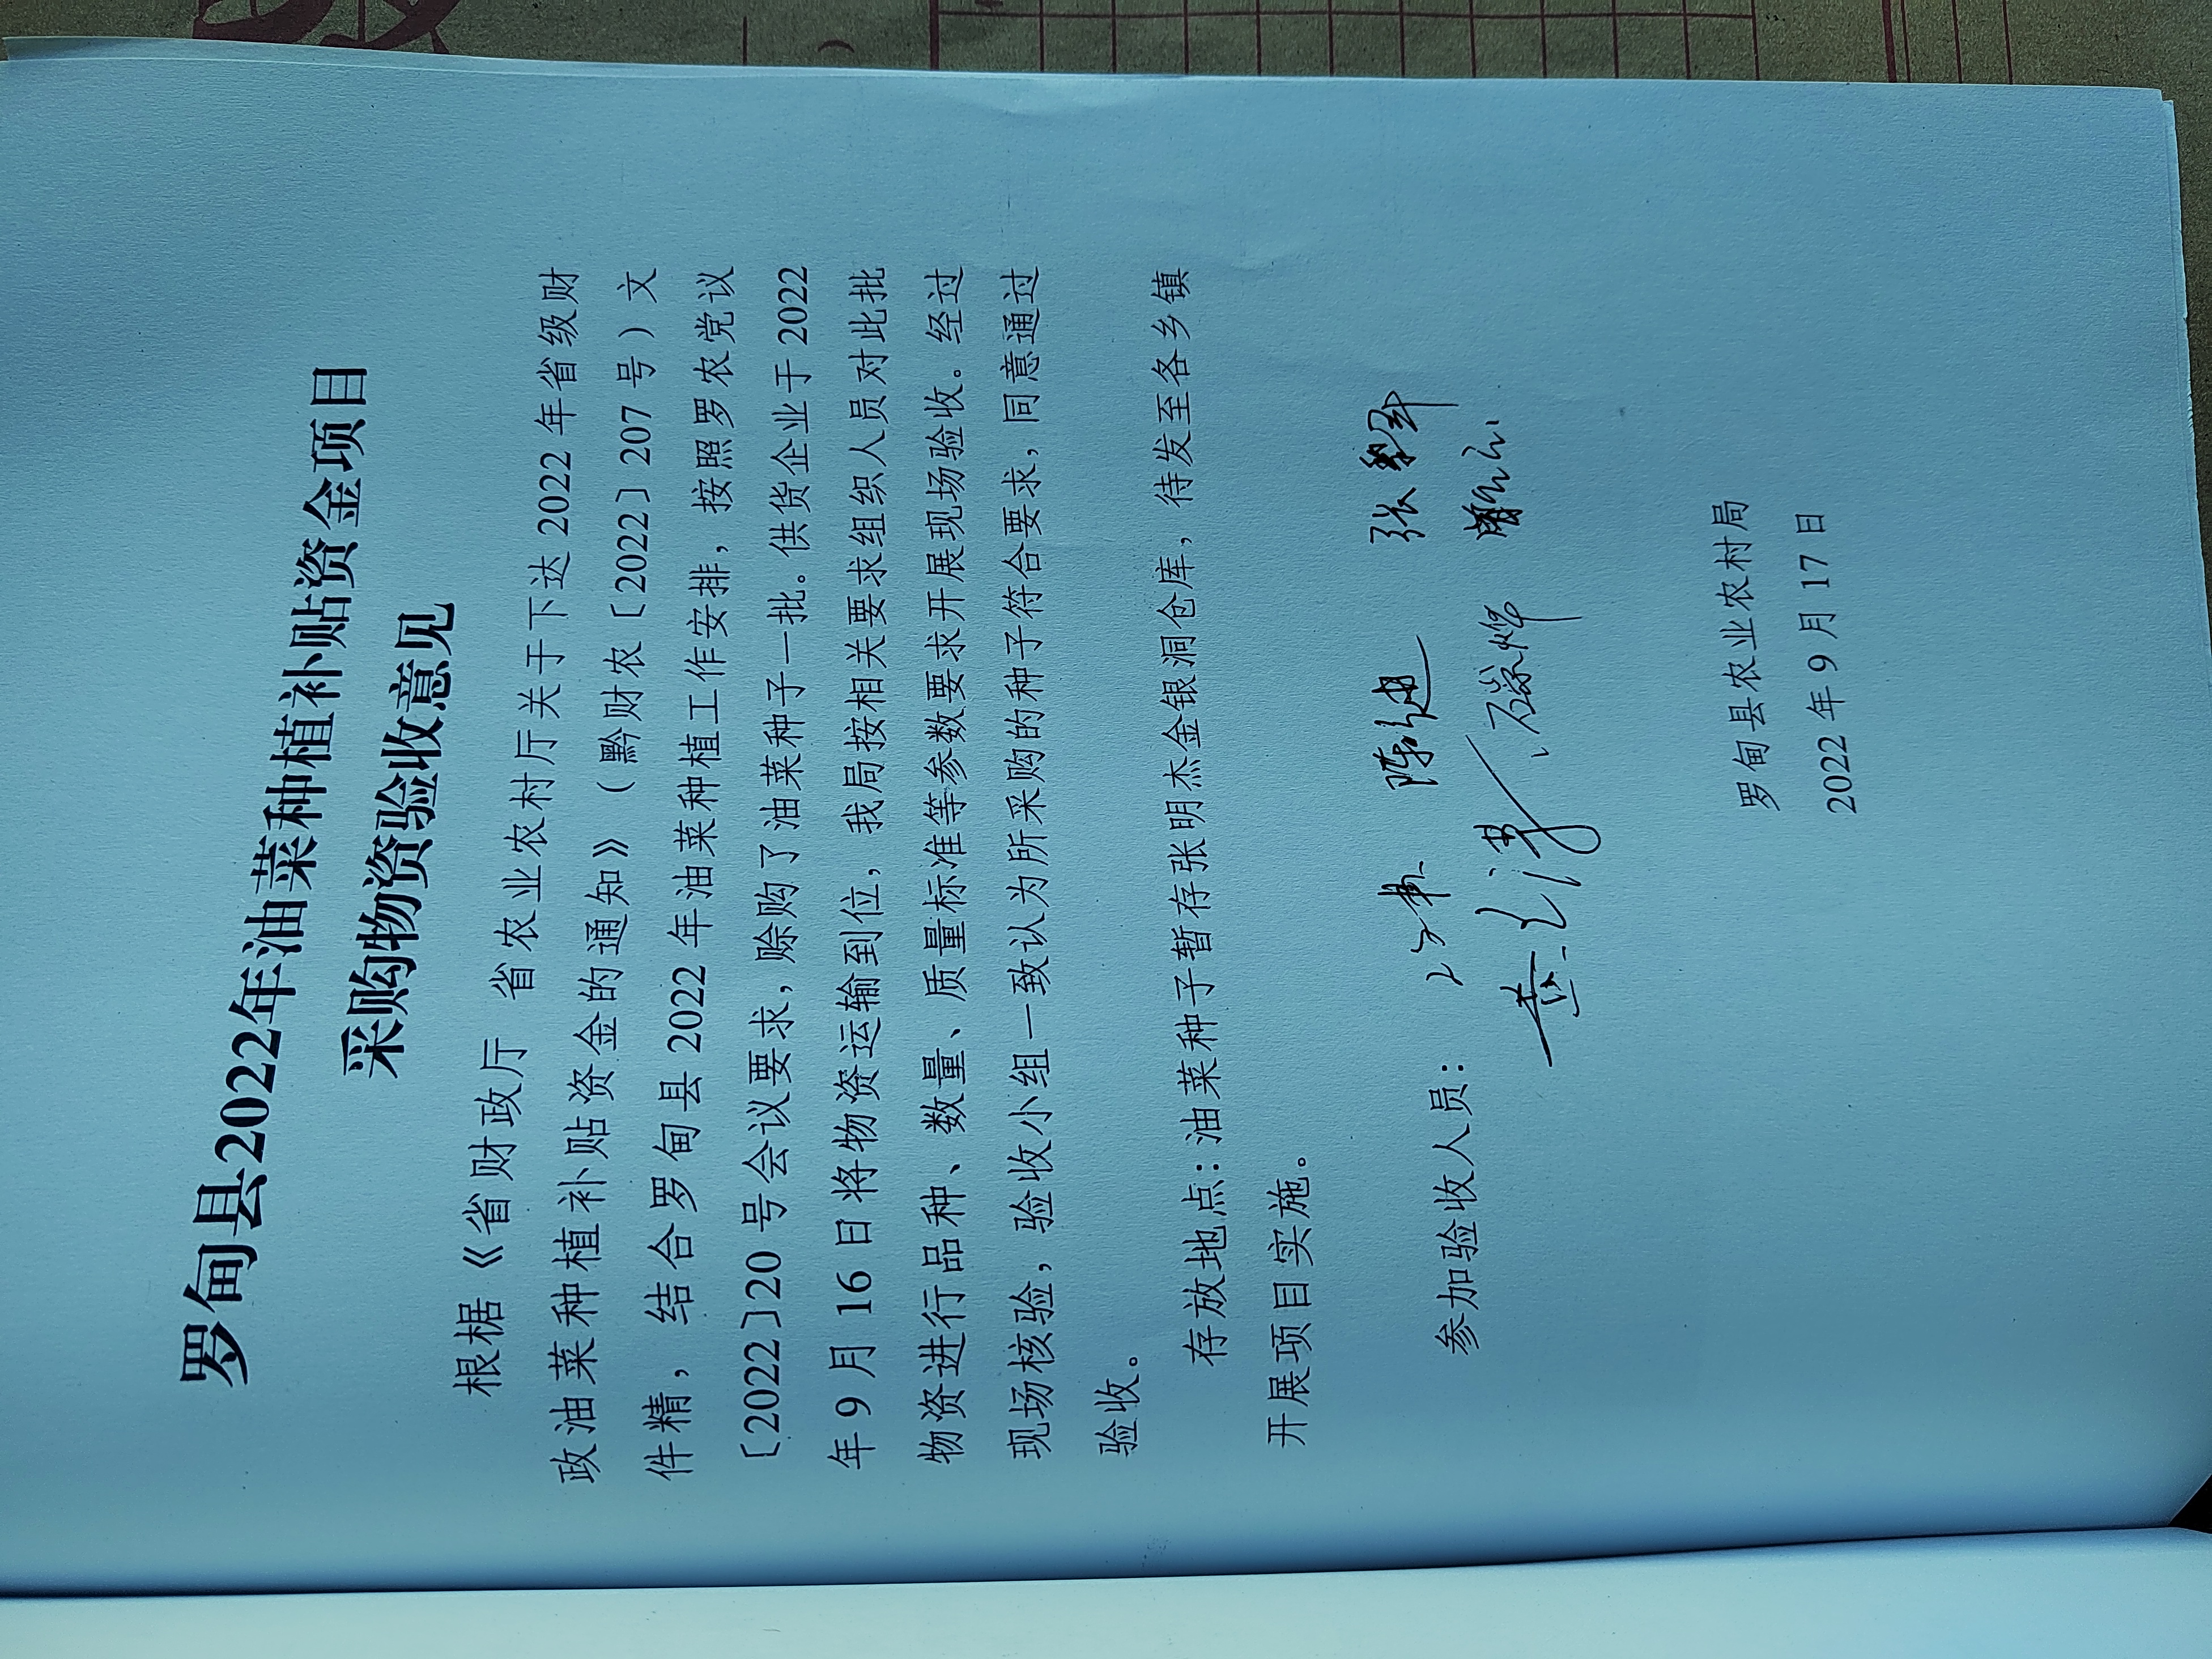 罗甸县2022年油菜种植补贴资金项目
采购物资验收意见
根椐《省财政厅 省农业农村厅关于下达2022年省级财
政油菜种植补贴资金的通知》（黔财农〔2022〕207号）文
件精，结合罗甸县2022年油菜种植工作安排，按照罗农党议
〔2022〕20号会议要求，赊购了油菜种子一批。供货企业于2022
年9月16日将物资运输到位，我局按相关要求组织人员对此批
物资进行品种、数量、质量标准等参数要求开展现场验收。经过
现场核验，验收小组一致认为所采购的种子符合要求，同意通过
验收。
存放地点：油菜种子暂存张明杰金银洞仓库，待发至各乡镇
开展项目实施。
参加验收人员：
罗甸县农业农村局
2022年9月17日